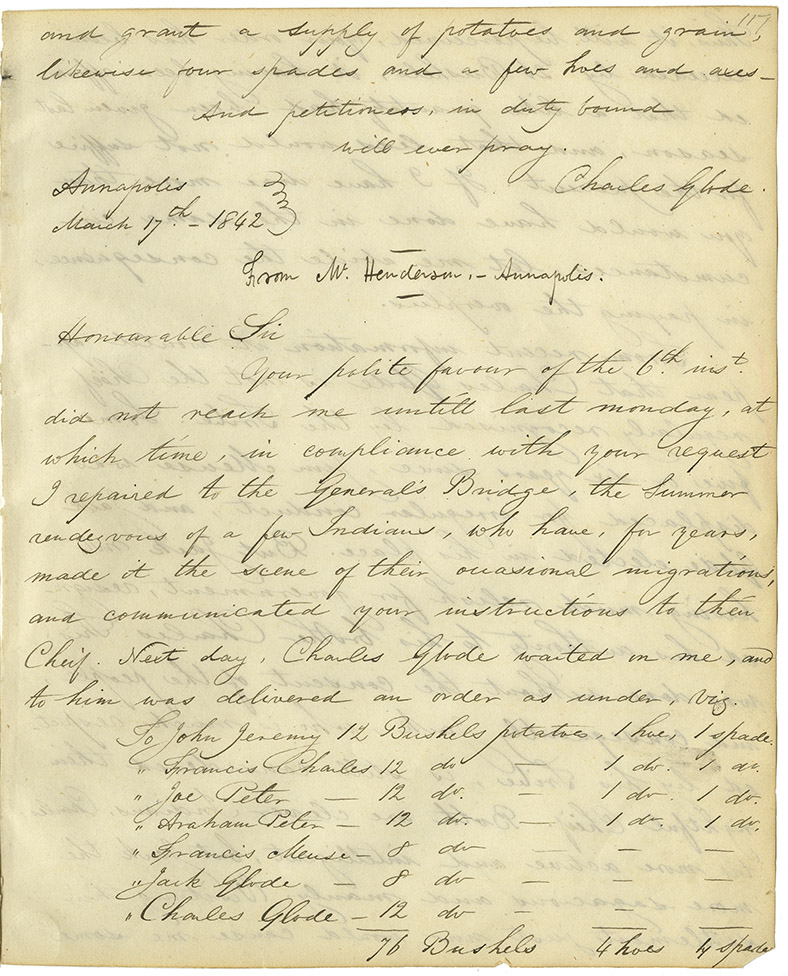 117
and grant a supply of potatoes and grain,
likewise four spades and a few hoes and axes—
And petitioners, in duty bound
will ever pray.
Annapolis
Charles Glode.
March 17th – 1842
From Mr. Henderson, – Annapolis.
Honourable Sir
Your polite favour of the 6th inst.
did not reach me untill last monday, at
which time, in compliance with your request
I repaired to the General's Bridge, the Summer
rendezvous of a few Indians, who have, for years,
made it the scene of their occasional migrations,
and communicated your instructions to their
Cheif. Next day, Charles Glode waited on me, and
to him was delivered an order as under, viz.
To John Jeremy 12 Bushels potatoes, 1 hoe, 1 spade.
" Francis Charles 12 do — 1 do. 1 do.
" Joe Peter — 12 do. — 1 do. 1 do.
" Araham Peter — 12 do. — 1 do. 1 do.
" Francis Meuse — 8 do — — —
" Jack Glode — 8 do — — —
" Charles Glode — 12 do — — —
76 Bushels 4 hoes 4 spade